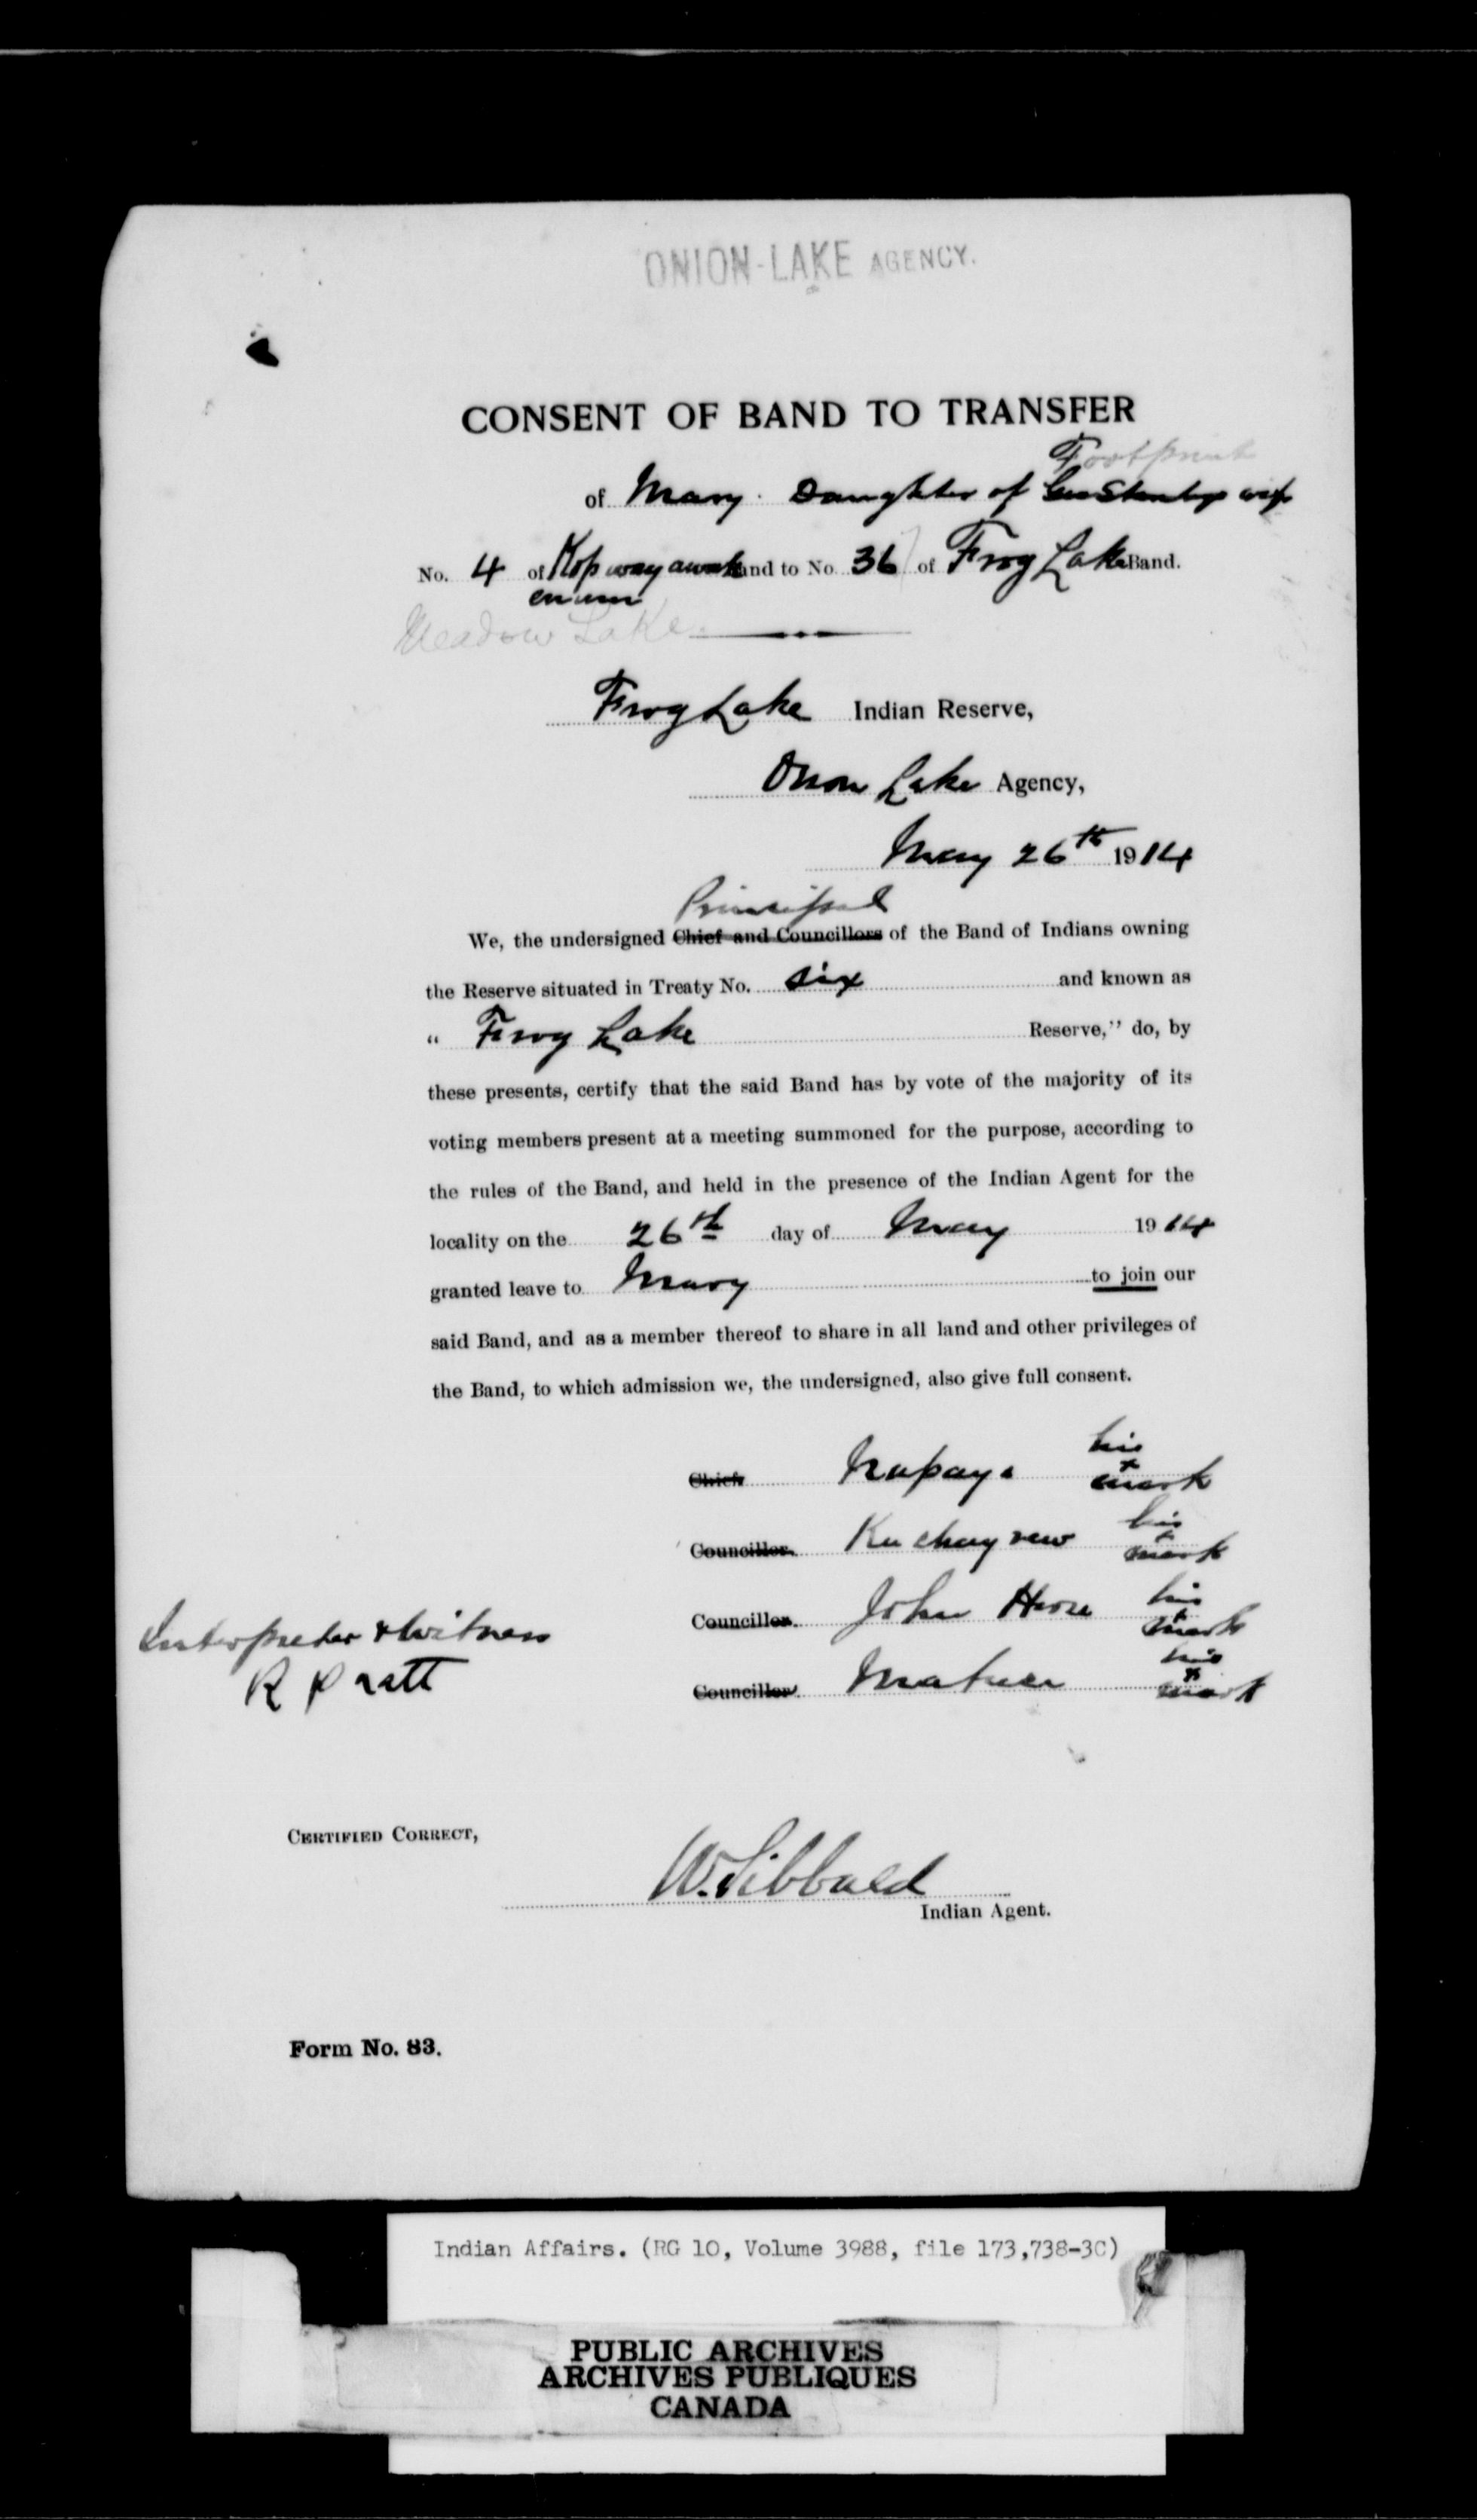 ONION-LAKE AGENCY.
CONSENT OF BAND TO TRANSFER
Footprint
of Mary. Daughter of
No. 4 of Kopwayawak Band to No. 36 of Frog Lake Band.
enum
Meadow Lake.
Frog Lake Indian Reserve,
Onion Lake Agency,
May 26th 1914
Principal
We, the undersigned Chief and Councillors of the Band of Indians owning
the Reserve situated in Treaty No. six and known as
" Frog Lake Reserve," do, by
these presents, certify that the said Band has by vote of the majority of its
voting members present at a meeting summoned for the purpose, according to
the rules of the Band, and held in the presence of the Indian Agent for the
locality on the 26th day of May 1914
granted leave to Mary to join our
said Band, and as a member thereof to share in all land and other privileges of
the Band, to which admission we, the undersigned, also give full consent.
Chief Napaya his x mark
Councillor. his x mark
Councillor. John Horse his x mark
Councillor. his x mark
Interpreter & Witness
R Pratt
CERTIFIED CORRECT,
W. Sibbald
Indian Agent.
Form No. 83.
Indian Affairs. (RG 10, Volume 3988, file 173,738-3C)
PUBLIC ARCHIVES
ARCHIVES PUBLIQUES
CANADA